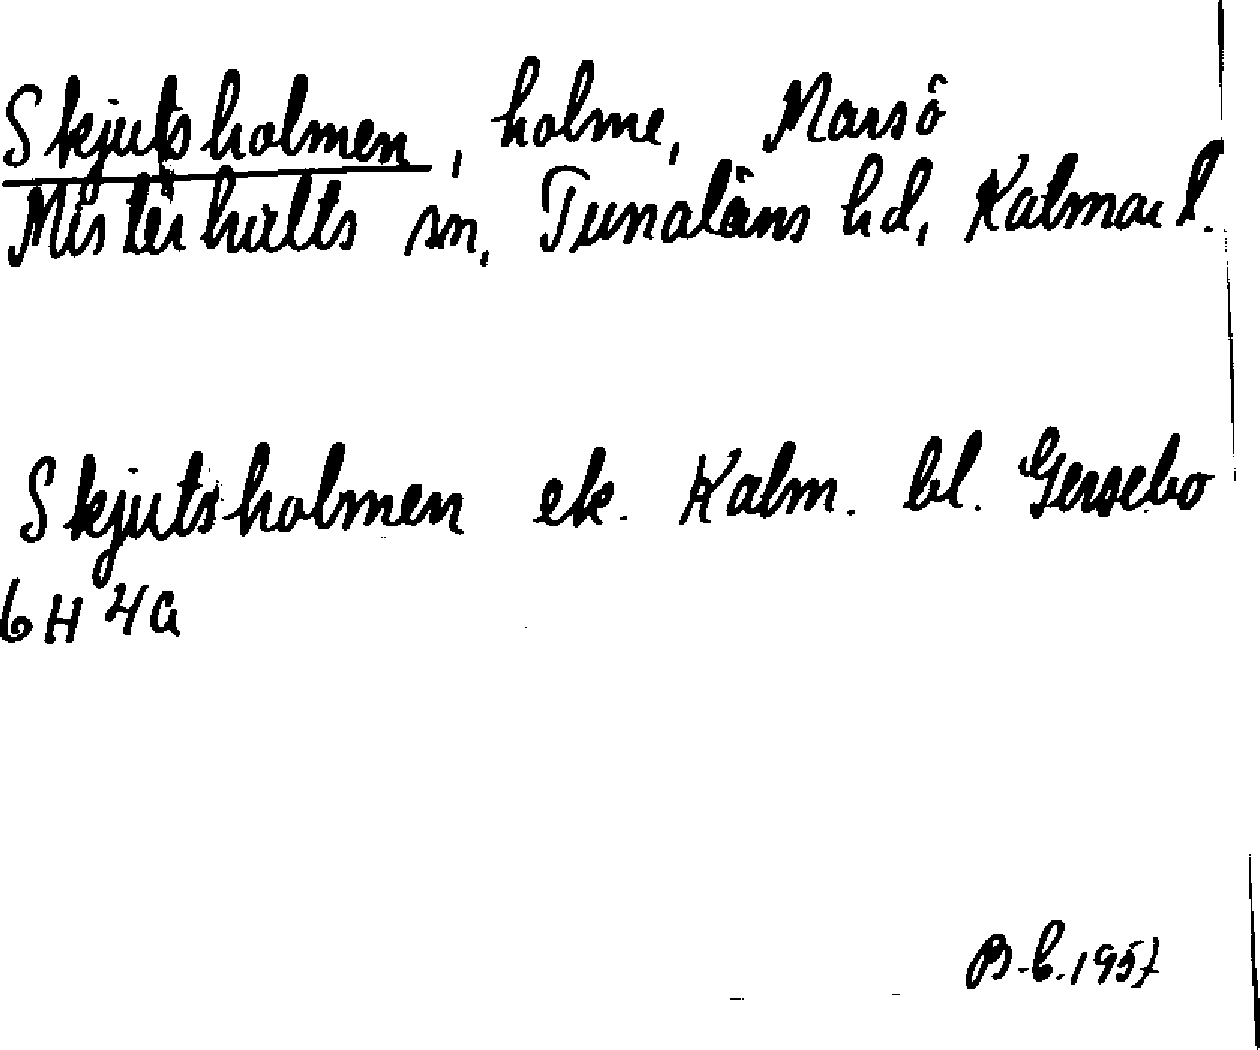 Skjutsholmen, holme, Marsö
Misterhults sn, Tunaläns hd, Kalmar l.
Skjutsholmen ek. Kalm. bl. Gersebo
6H 4a
B-b. 1957